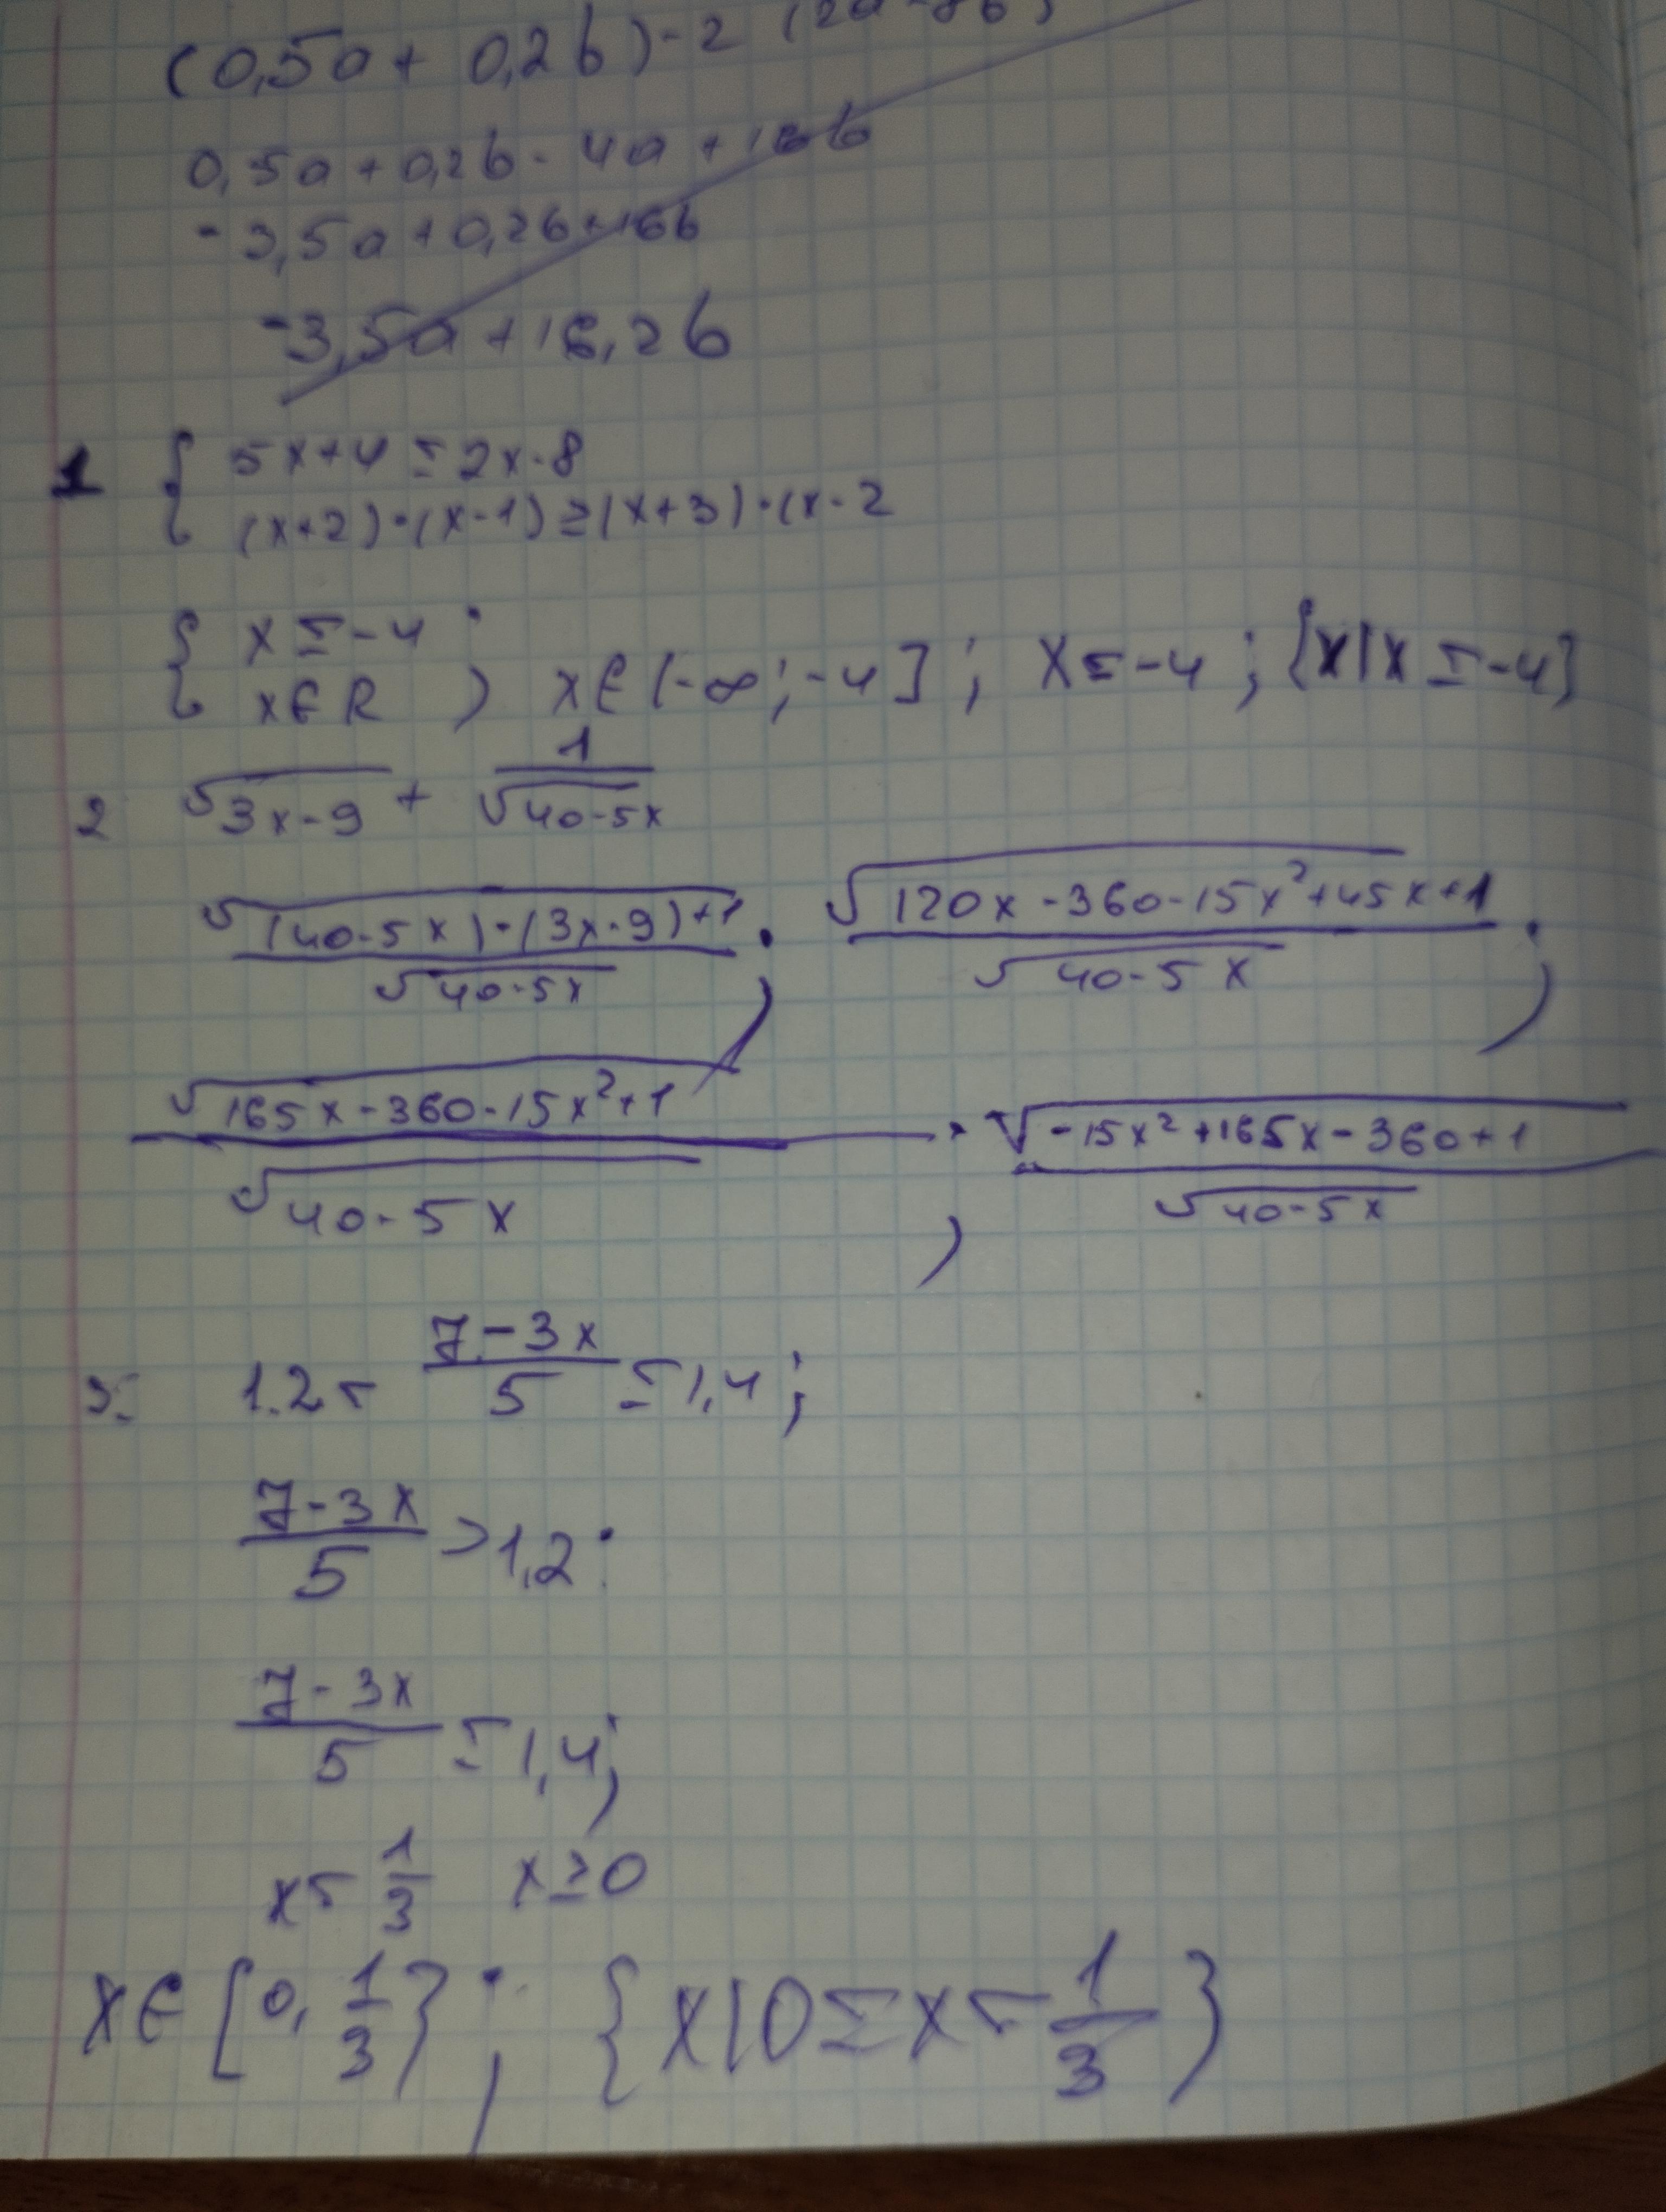 (0,5a + 0,2b) - 2 (2a - 8b)
0,5a + 0,2b - 4a + 16b
- 3,5a + 0,2b + 16b
-3,5a + 16,2b
1 { 5x+4 ≤ 2x-8
(x+2)·(x-1) ≥ (x+3)·(x-2
{ x ≤ -4 ;
x∈R x∈(-∞; -4]; x ≤ -4; {x|x ≤ -4}
2 √(3x-9) + 1/√(40-5x)
√((40-5x)·(3x-9)+1)/√(40-5x) ; √(120x-360-15x²+45x+1)/√(40-5x) ;
√(165x-360-15x²+1)/√(40-5x) ; √(-15x²+165x-360+1)/√(40-5x)
3. 1.2 < (7-3x)/5 ≤ 1,4;
(7-3x)/5 > 1,2;
(7-3x)/5 ≤ 1,4;
x < 1/3 x ≥ 0
x∈[0, 1/3}; {x|0 ≤ x < 1/3}